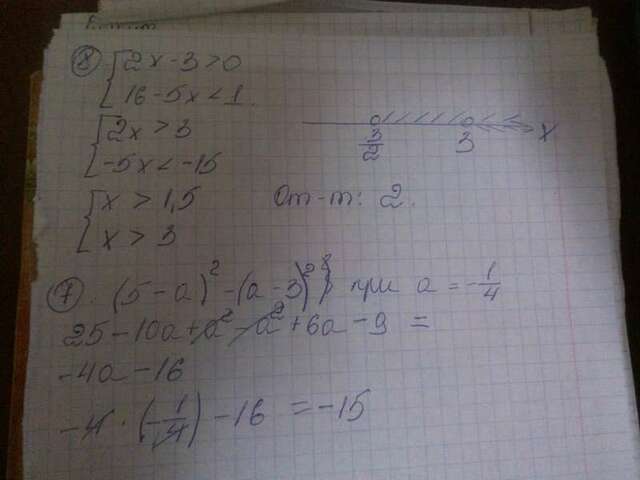 8) { 2x - 3 > 0
16 - 5x < 1
{ 2x > 3
-5x < -15
{ x > 1,5
x > 3
3/2 3 x
От-т: 2.
7. (5 - a)² - (a - 3)² при a = -1/4
25 - 10a + a² - a² + 6a - 9 =
-4a - 16
-4 · (-1/4) - 16 = -15